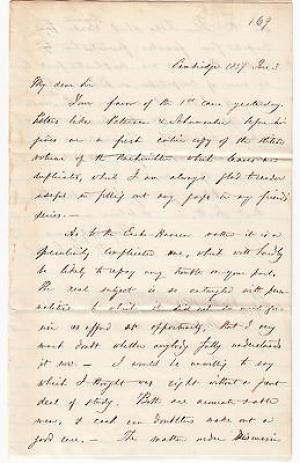 169
Cambridge 1857 Jan 3
My dear Sir
Your favor of the 1st came yesterday.
like Peterson & Schumacher before his
gives me a fresh entire copy of the
volume of the Nachrichten which leaves me
duplicates, which I am always glad to render
useful in filling out any gaps in my friends'
series. —
As to the matter it is a
peculiarly complicated one, which will hardly
be likely to repay any trouble on your part.
The real subject is so entangled with per-
sonalities to which it did not
an opportunity, that I very
much doubt whether anybody fully understands
it now. — I would be unwilling to say
which I thought was right without a great
deal of study. Both are accurate
men, & each can doubtless make out a
good case. — The matter under discussion